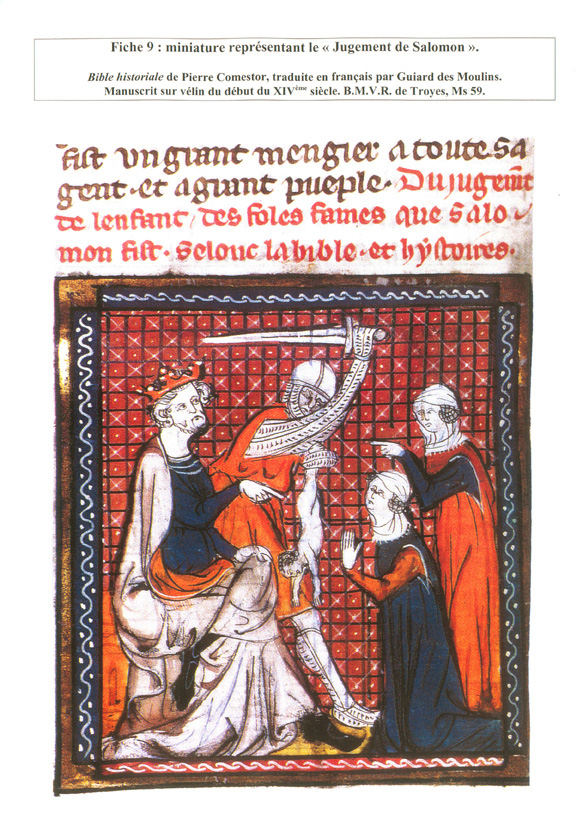 Fiche 9 : miniature représentant le « Jugement de Salomon ».
Bible historiale de Pierre Comestor, traduite en français par Guiard des Moulins.
Manuscrit sur vélin du début du XIVème siècle. B.M.V.R. de Troyes, Ms 59.
fist un grant mengier a toute sa
gent · et a grant pueple · Du iugemt
de lenfant / des foles fames que salo
mon fist · selonc la bible · et hystoires ·